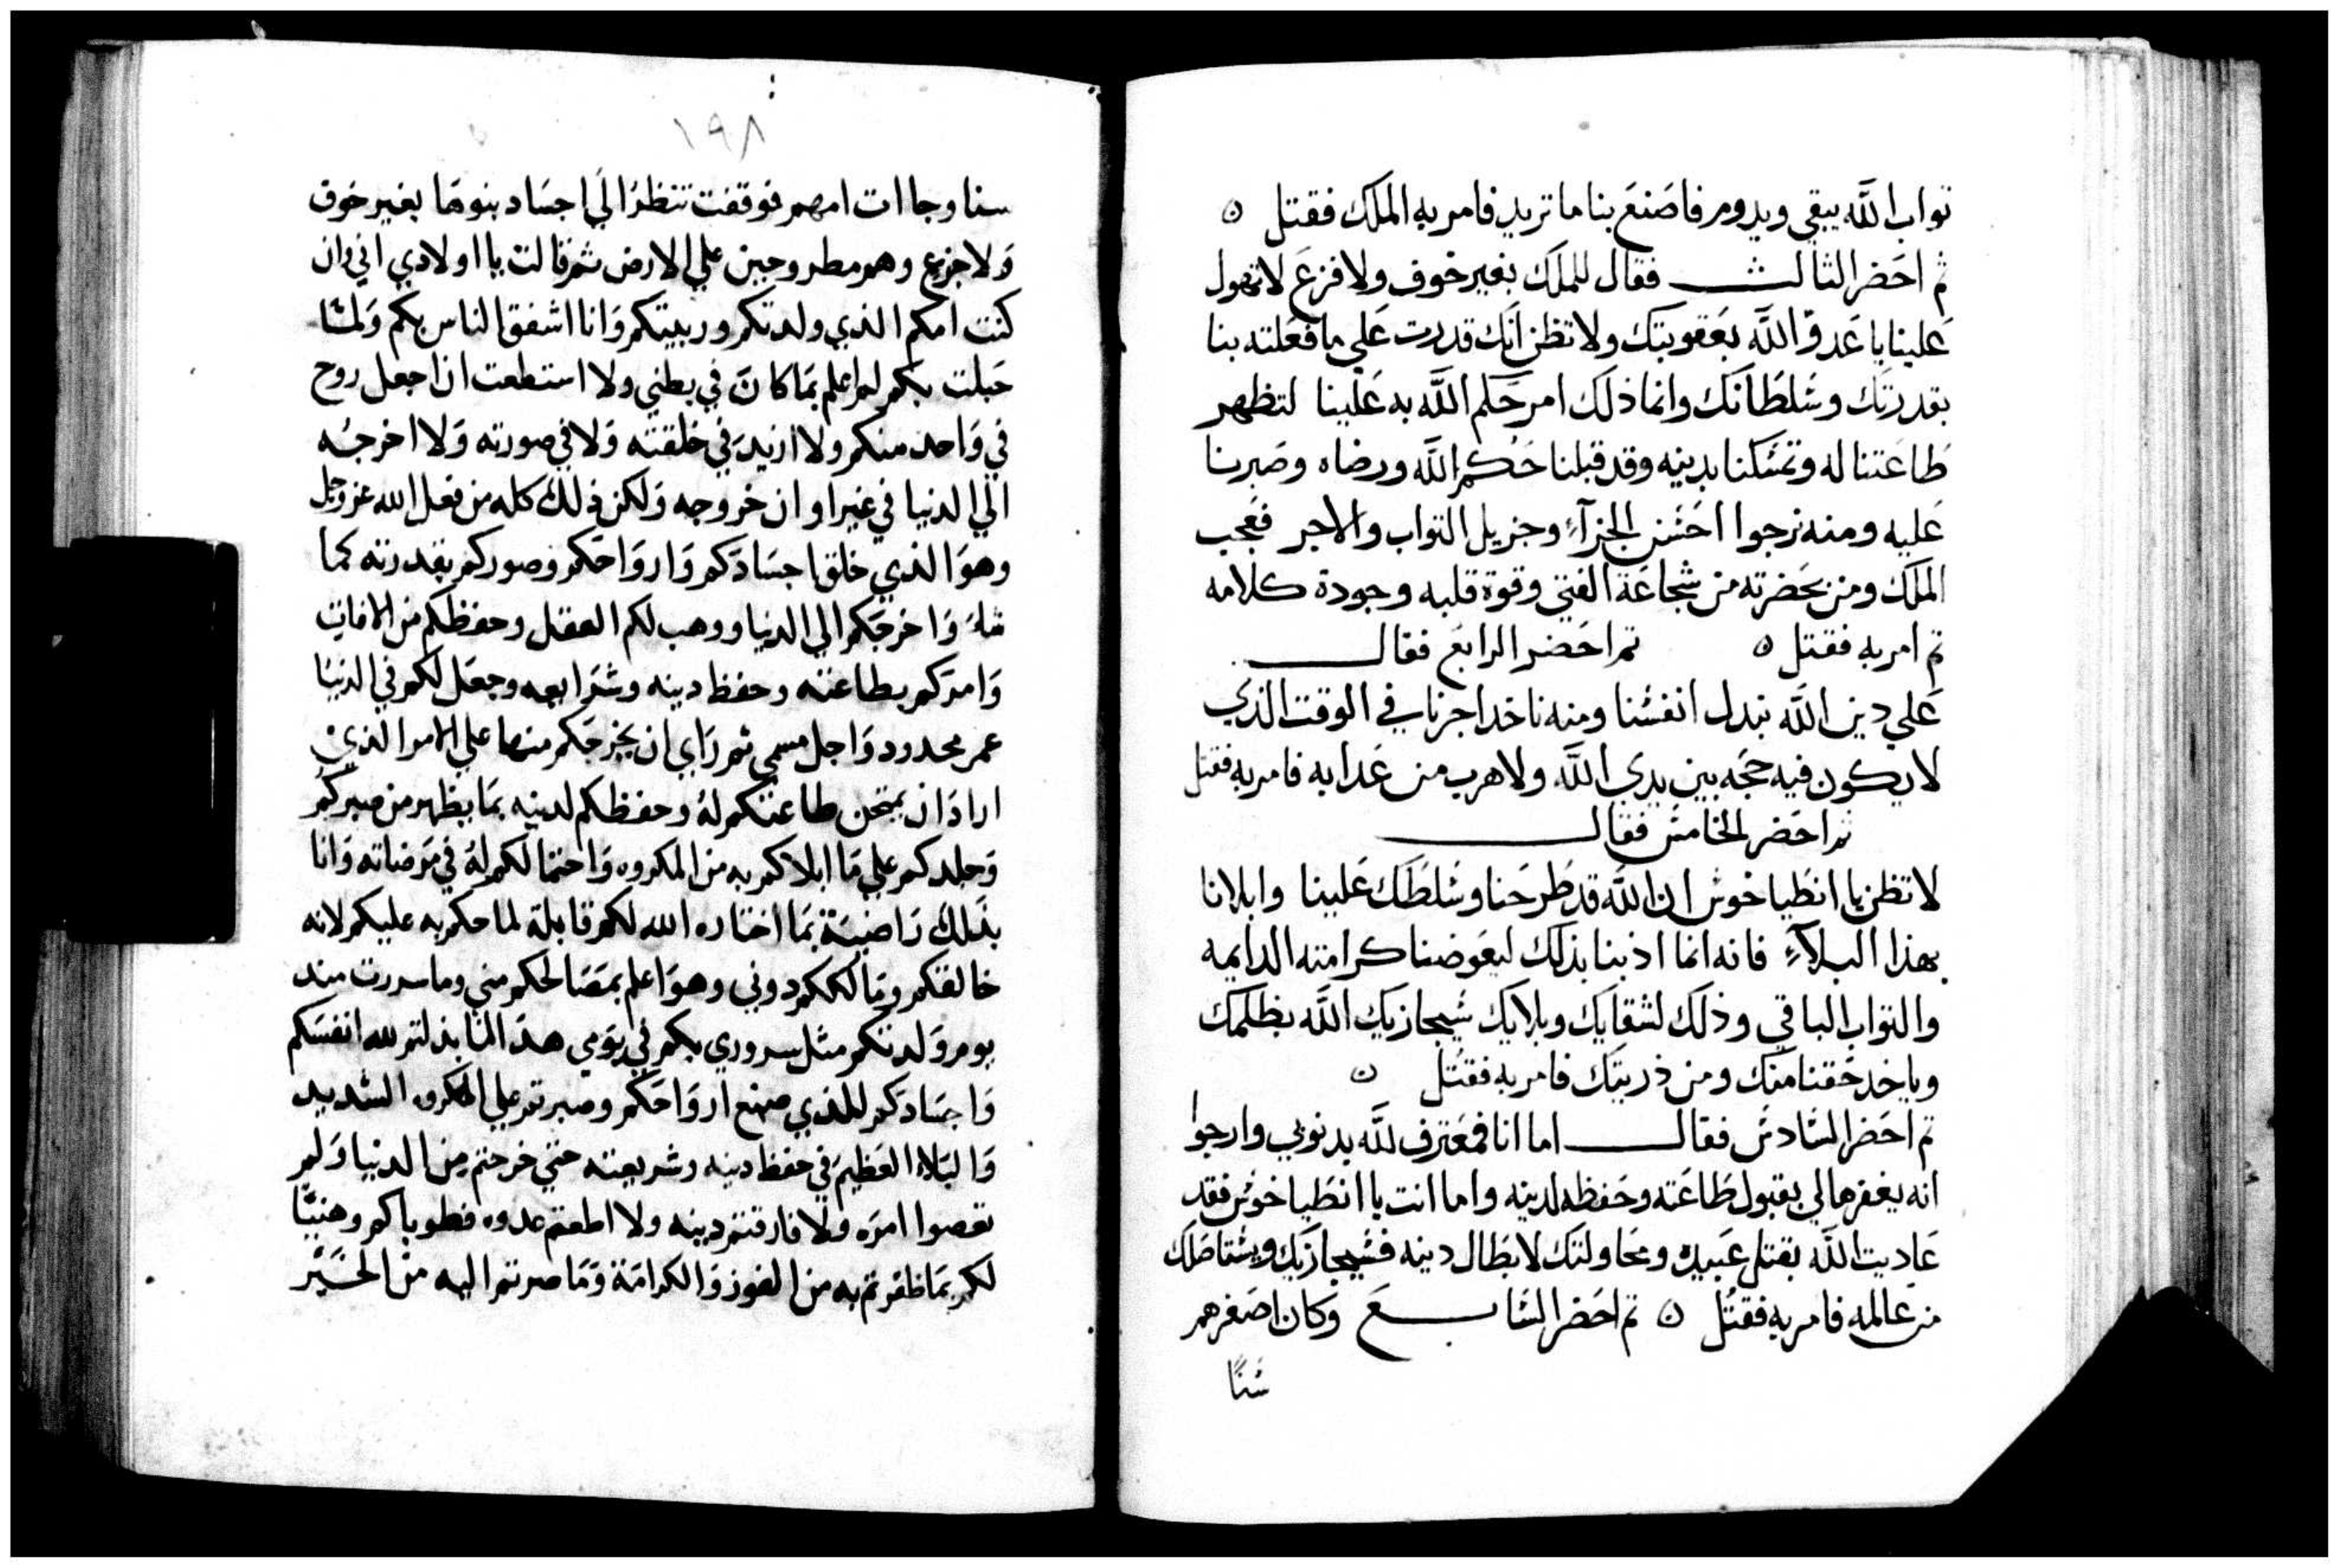 تواب الله يبقي ويدوم فاصنع بنا ما تريد فامر به الملك فقتل ٥
ثم احضر الثالث فقال للملك بغير خوف ولا فزع لا تهول
علينا يا عدو الله بعقوبتك ولا تظن انك قدرت علي ما فعلته بنا
بقدرتك وسلطانك وانما ذلك امر حكم الله به علينا لتظهر
طاعتنا له وتمسكنا بدينه وقد قبلنا حكم الله ورضاه وصبرنا
عليه ومنه نرجوا احسن الجزآء وجزيل التواب والاجر فعجب
الملك ومن بحضرته من شجاعة الفتي وقوة قلبه وجودة كلامه
تم امر به فقتل ٥ تم احضر الرابع فقال
علي دين الله نبدل انفسنا ومنه ناخد اجرنا في الوقت الذي
لا يكون فيه حجه بين يدي الله ولا هرب من عدابه فامر به فقتل
تم احضر الخامس فقال
لا تظن يا انطياخوس ان الله قد طرحنا وسلطك علينا وابلانا
بهذا البلآء فانه انما اذبنا بذلك ليعوضنا كرامته الدايمه
والتواب الباقي وذلك لشقايك وبلايك سيجازيك الله بظلمك
وياخد حقنا منك ومن ذريتك فامر به فقتل ٥
تم احضر السادس فقال اما انا فمعترف لله بدنوبي وارجوا
انه يغفرها لي بقبول طاعته وحفظه لدينه واما انت يا انطياخوس فقد
عاديت الله بقتل عبيده ومحاولتك لابطال دينه فسيجازيك ويستاصلك
من عالمه فامر به فقتل ٥ تم احضر السابع وكان اصغرهم
سنًا
١٩٨
سنا وجاات امهم فوقفت تنظر الي اجساد بنوها بغير خوف
ولا جزع وهم مطروحين علي الارض ثم قالت يا اولادي اني وان
كنت امكم الذي ولدتكم وربيتكم وانا اشفق الناس بكم ولمّا
حبلت بكم لم اعلم بما كان في بطني ولا استطعت ان اجعل روح
في واحد منكم ولا ازيد في خلقته ولا في صورته ولا اخرجه
الي الدنيا في غير اوان خروجه ولكن ذلك كله من فعل الله عز وجل
وهو الذي خلق اجسادكم وارواحكم وصوركم بقدرته كما
شاء واخرجكم الي الدنيا ووهب لكم العقل وحفظكم من الافات
وامركم بطاعته وحفظ دينه وشرايعه وجعل لكم في الدنيا
عمر محدود واجل مسمي ثم راي ان يخرجكم منها علي الامر الذي
اراد ان يمتحن طاعتكم له وحفظكم لدينه بما يظهر من صبركم
وجلدكم علي ما ابلاكم به من المكروه واحتمالكم له في مرضاته وانا
بذلك راضية بما اختاره الله لكم قابلة لما حكم به عليكم لانه
خالقكم ومالككم دوني وهو اعلم بمصالحكم مني وما سررت منذ
يوم ولدتكم مثل سروري بكم في يومي هذا لما بذلتم لله انفسكم
واجسادكم للذي صنع ارواحكم وصبرتم علي المكروه الشديد
والبلاء العظيم في حفظ دينه وشريعته حتي خرجتم من الدنيا ولم
تعصوا امره ولا فارقتم دينه ولا اطعتم عدوه فطوباكم وهنيًّا
لكم بما ظفرتم به من الفوز والكرامة وما صرتم اليه من الخير